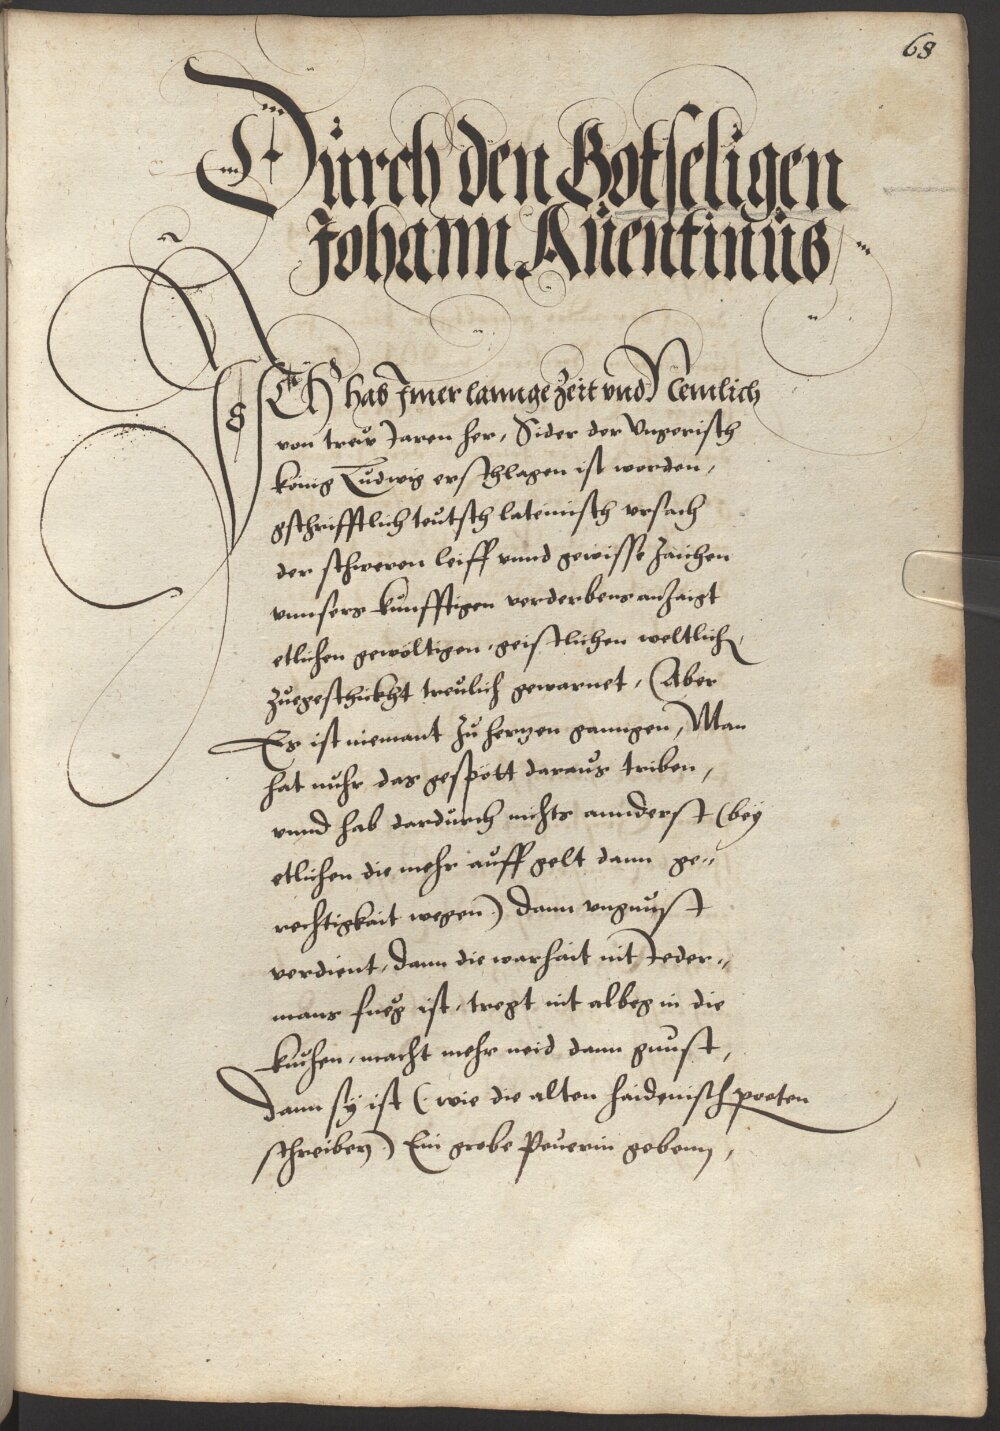 68
Durch den Gotseligen
Johann Auentinus
ICh hab Imer lannge Zeit vnd Nemlich
von treir Jaren her, Sider der Vngerisch
könig Ludwig erschlagen ist worden,
gschrifftlich teutsch lateinisch vrsach
der schweren leiff vnnd gewisse zaichen
vnnsers kunfftigen verderbens anzaigt
etlichen gewöltigen, geistlichen weltlich,
zuegeschickht treulich gewarnet, (Aber
Es ist niemant zu hertzen ganngen, Man
hat nuhr das gespött daraus triben,
vnnd hab dardurch nichts annderst (bey
etlichen die mehr auff gelt dann ge„
rechtigkait wegen) dann vngunst
verdient, dann die warhait nit Jeder„
mans fueg ist, tregt nit albeg in die
kuchen, macht mehr neid dann gunst,
dann sy ist (wie die alten haidenisch poeten
schreiben) Ein grobe Peuerin gebenn,